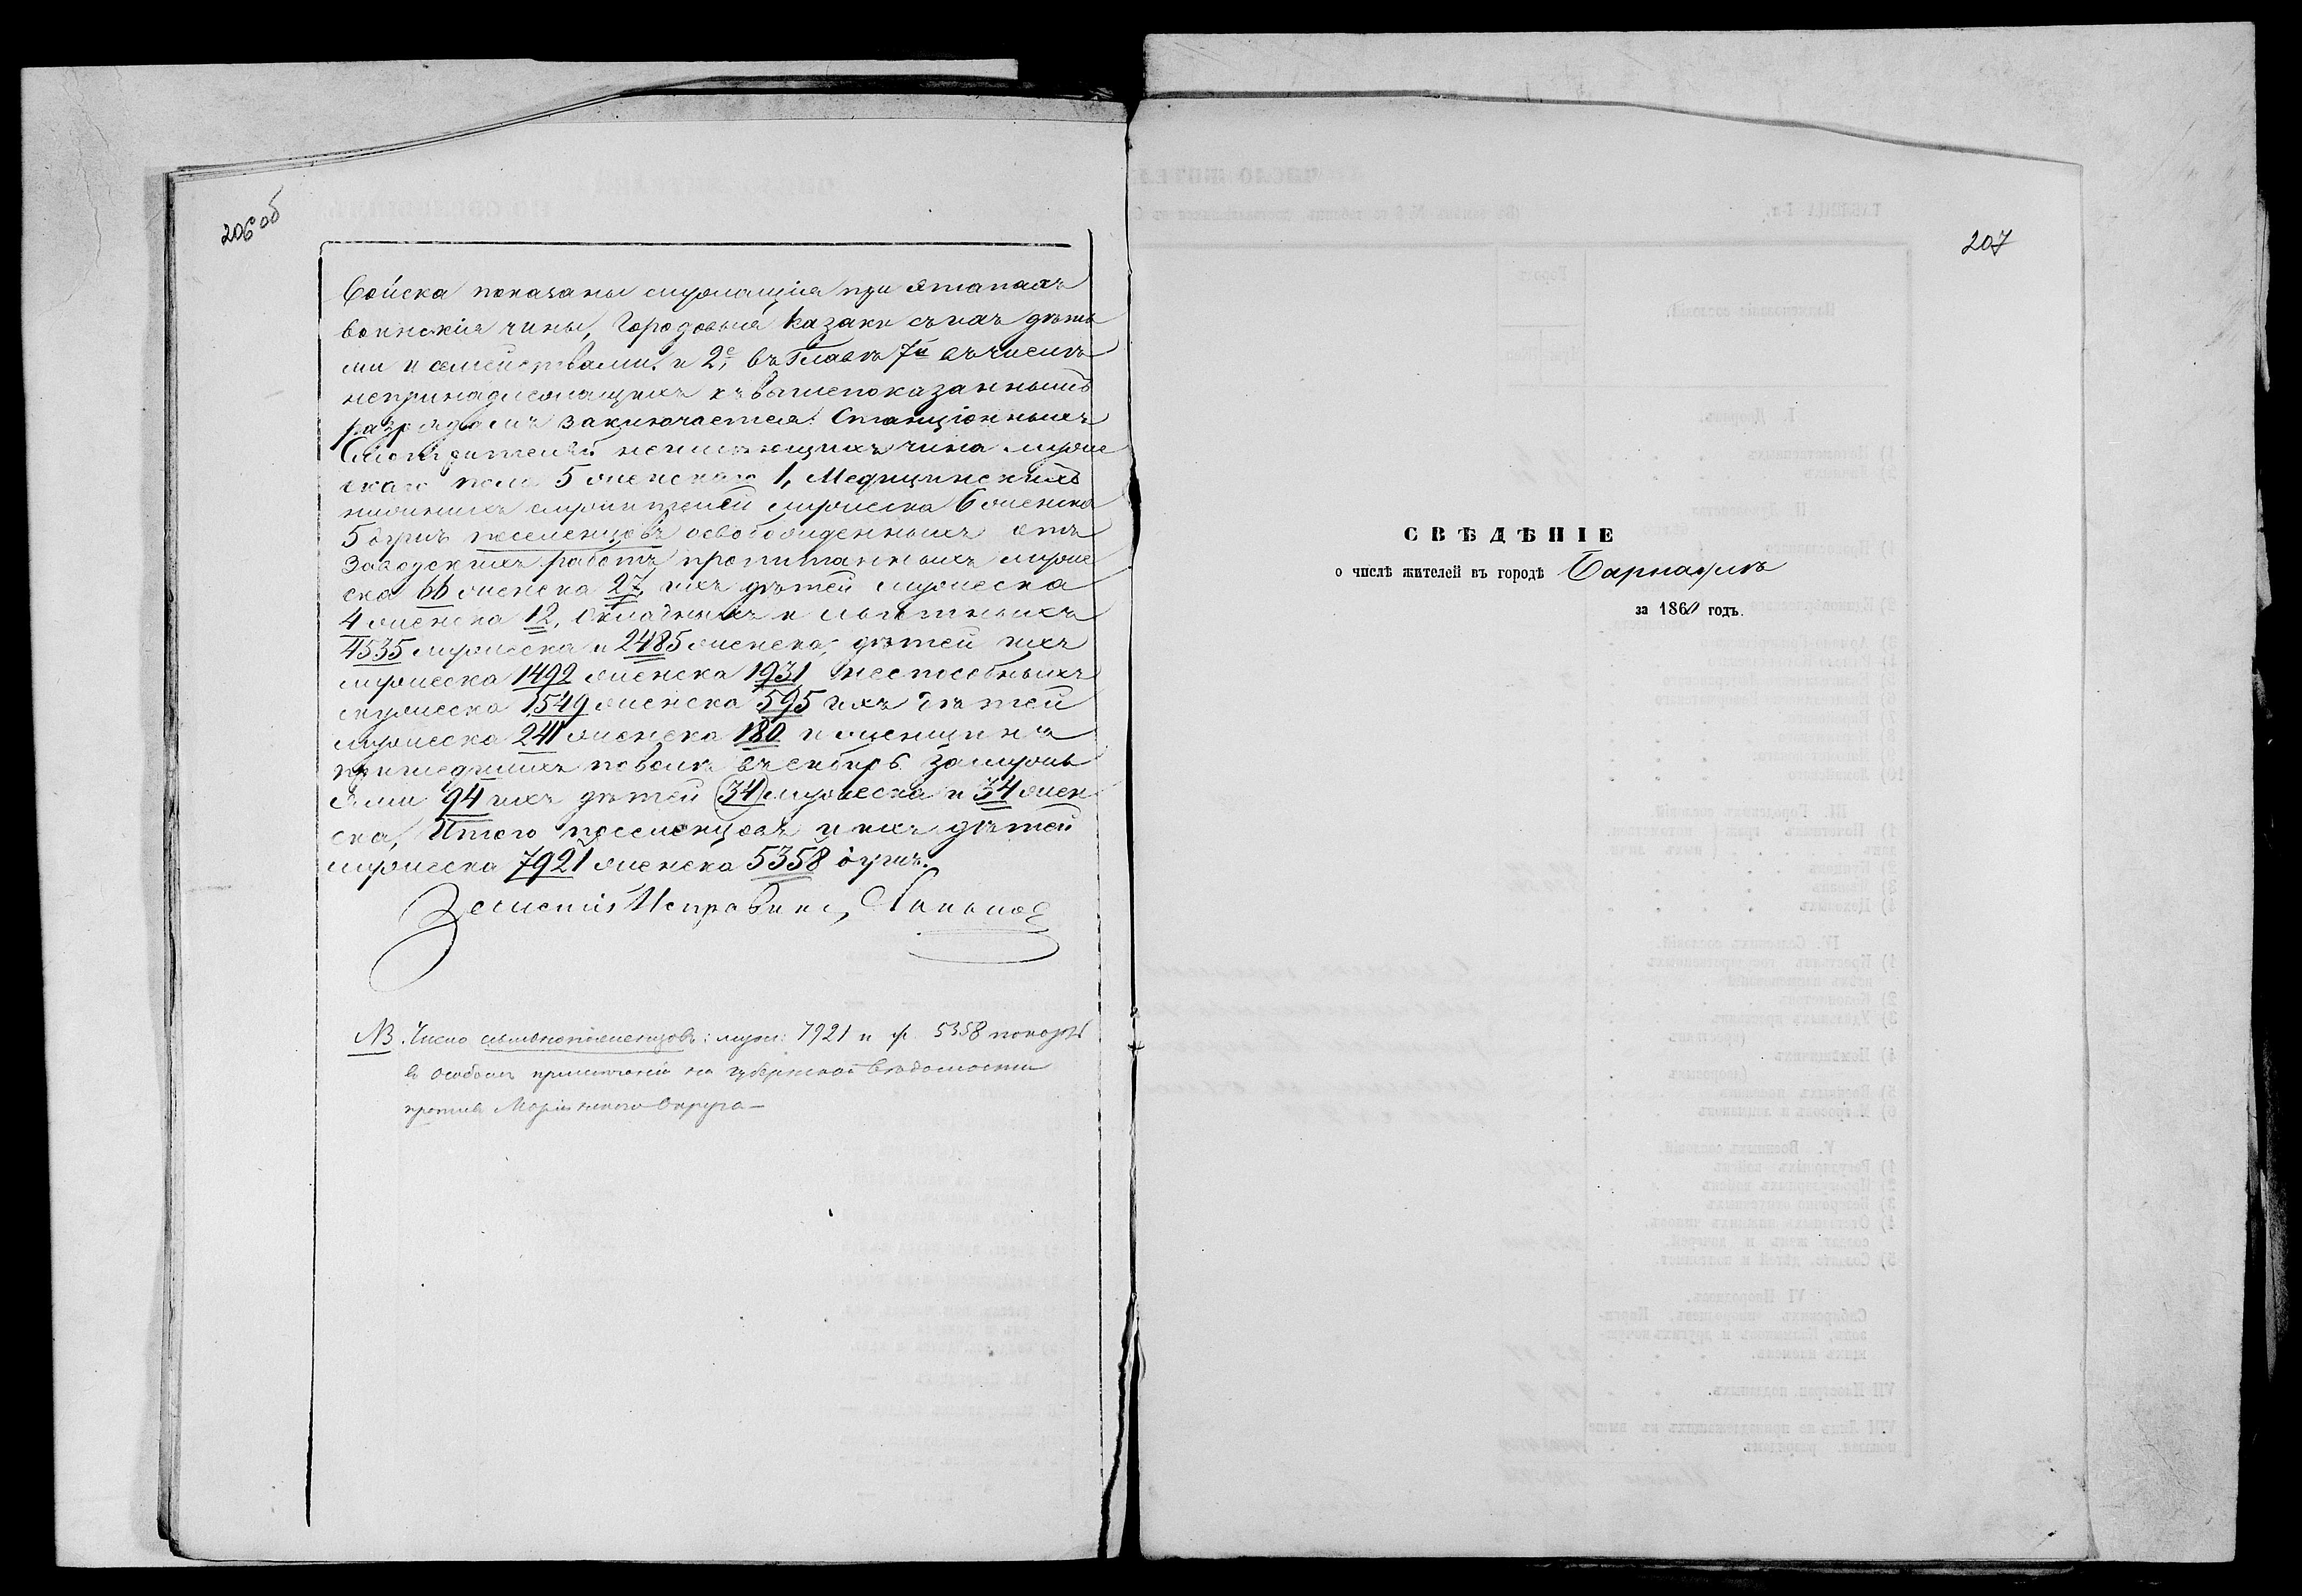 206 об
Войска показаны служащіе при Этапахъ
воинскія чины, Городовыя Казаки съ ихъ дѣть
ми и семействами. и 2е, въ Главѣ 7й въ числѣ
непринадлежащихъ къ вышепоказаннымъ
разрядамъ заключается: Станціонныхъ
Смотрителей неимѣющихъ чина муже
скаго пола 5 женскаго 1, Медицинскихъ
нижнихъ служителей мужеска 6 женска
5 душъ поселенцовъ освобожденныхъ отъ
Заводскихъ работъ пропитанныхъ муже
ска 66 женска 27, ихъ дѣтей мужеска
4 женска 12, Окладныхъ и льготныхъ
4535 мужеска и 2485 женска, дѣтей ихъ
мужеска 1492 женска 1931, неспособныхъ
мужеска 1549 женска 595 ихъ дѣтей
мужеска 241 женска 180 и женщинъ
пришедшихъ по волѣ въ Сибирь за мужь
ями 94 ихъ дѣтей 34 мужеска и 34 жен
ска, Итого поселенцовъ и ихъ дѣтей
мужеска 7921 женска 5358 душъ.
Земскій Исправникъ
NB. Число ссыльнопоселенцовъ: муж: 7921 и ж. 5358 показ.
въ особомъ примѣчаніи на Губернской вѣдомости
противъ Маріинскаго Округа —
207
СВѢДѢНІЕ
о числѣ жителей въ городѣ Барнаулѣ
за 1860 годъ.